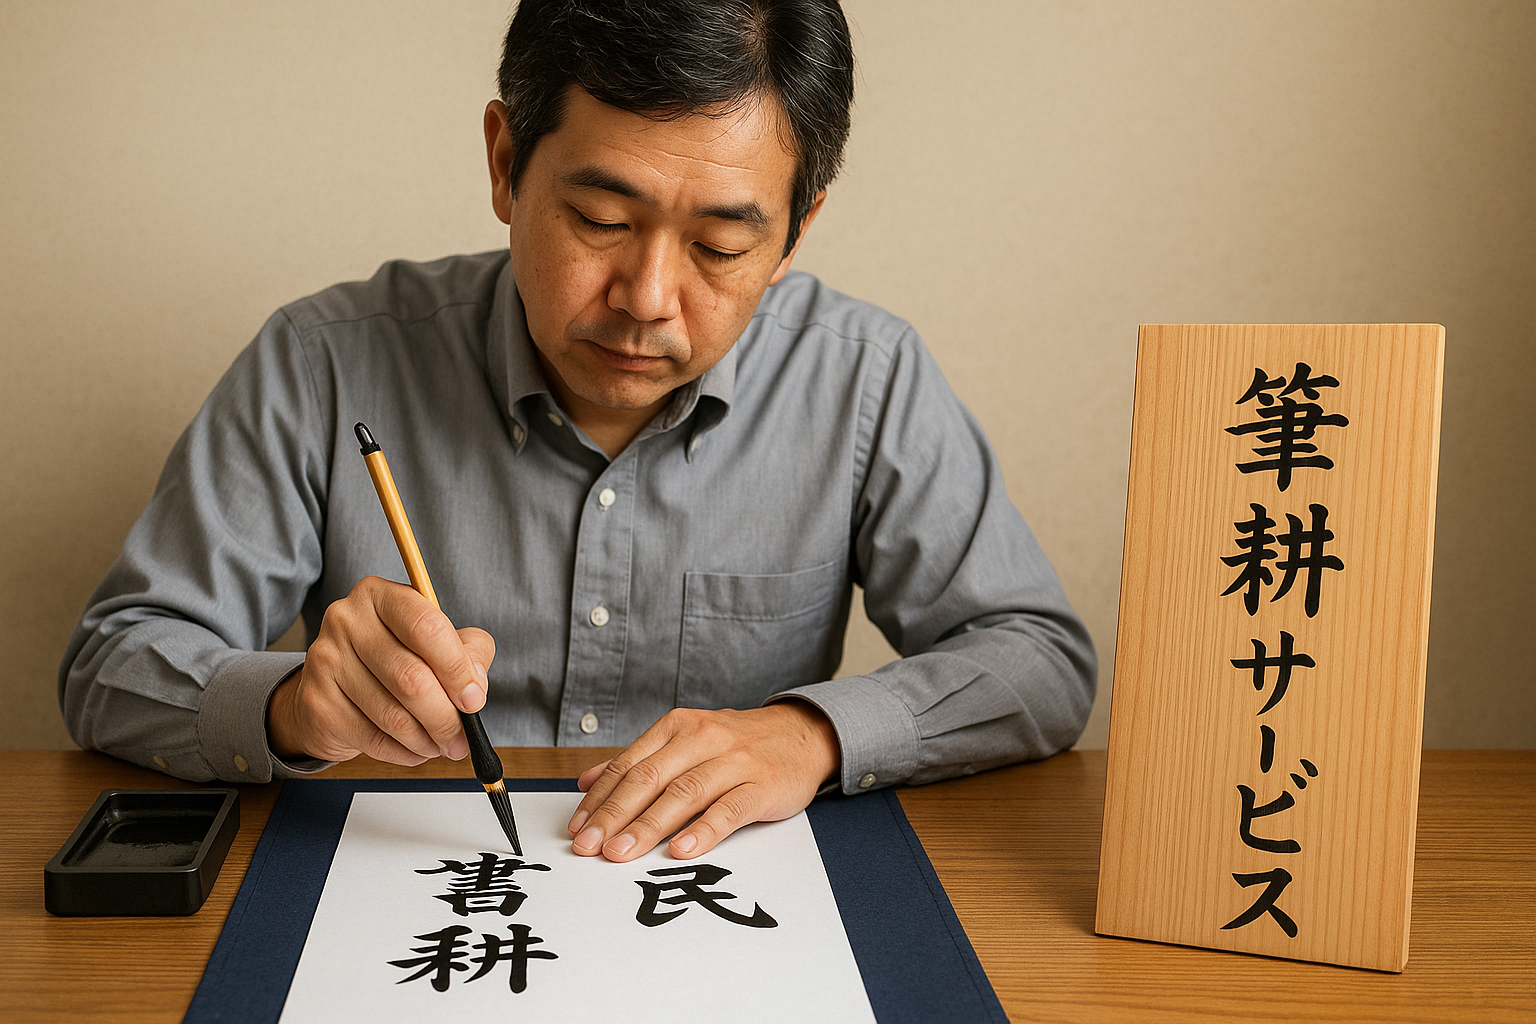 筆耕サービス
民
書耕